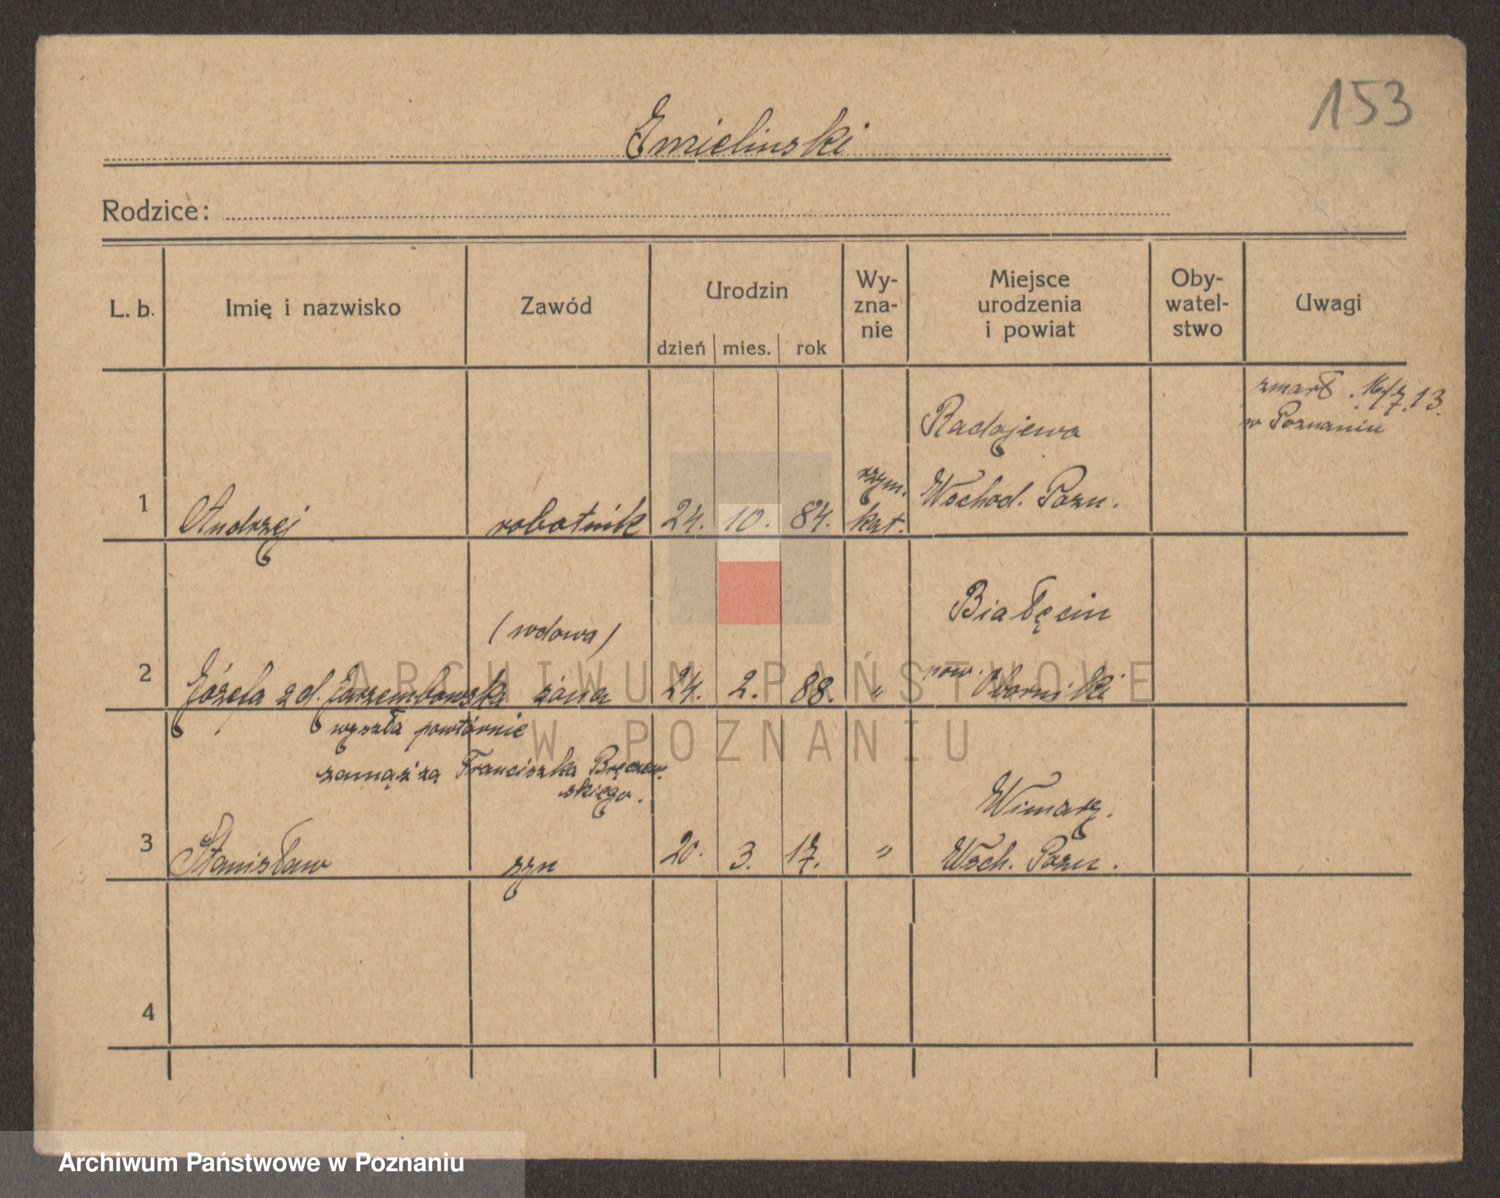 153
Emielinski
Rodzice:
L. b.
Imię i nazwisko
Zawód
Urodzin
dzień
mies.
rok
Wy-
zna-
nie
Miejsce
urodzenia
i powiat
Oby-
watel-
stwo
Uwagi
1
Andrzej
robotnik
24.
10.
84.
rzym.
kat.
Radojewo
Wschod. Pozn.
zmarł 7.13.
w Poznaniu
2
Józefa zd. Jarzembowska
(wdowa)
żona
24.
2.
88.
"
Białęcin
pow. Oborniki
wyszła powtórnie
zamąż za Franciszka Bręczew-
skiego.
3
Stanisław
syn
20.
3.
17.
"
Wsch. Pozn.
4
ARCHIWUM PAŃSTWOWE
W POZNANIU
Archiwum Państwowe w Poznaniu